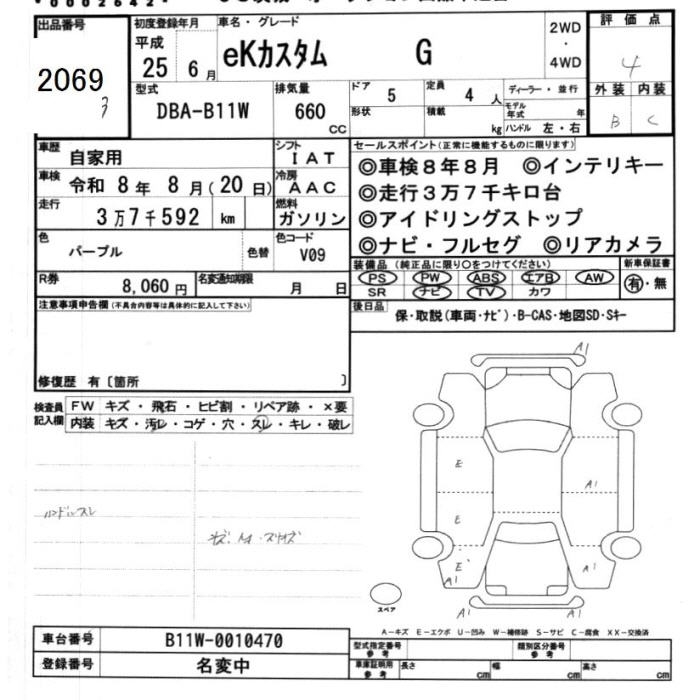 出品番号
2069
3
初度登録年月
平成
25 6月
車名・グレード
eKカスタム G
2WD
・
4WD
評価点
4
外装 内装
B C
型式
DBA-B11W
排気量
660
CC
ドア 5
定員 4 人
形状
積載 kg
ディーラー・並行
モデル年式 年
ハンドル 左・右
車歴
自家用
シフト
IAT
車検
令和 8年 8月(20日)
冷房
AAC
走行
3万7千592 km
燃料
ガソリン
色
パープル
色替
色コード
V09
R券
8,060円
名変通知期限
月 日
セールスポイント(正常に機能するものに限ります)
◎車検8年8月 ◎インテリキー
◎走行3万7千キロ台
◎アイドリングストップ
◎ナビ・フルセグ ◎リアカメラ
装備品 (純正品に限り○をつけてください)
PS PW ABS エアB AW
SR ナビ TV カワ
新車保証書
有・無
注意事項申告欄(不具合内容等は具体的に記入して下さい)
後日品
保・取説(車両・ナビ)・B-CAS・地図SD・Sキー
修復歴 有〔箇所 〕
検査員
記入欄
FW キズ・飛石・ヒビ割・リペア跡・×要
内装 キズ・汚レ・コゲ・穴・スレ・キレ・破レ
A1
E
A1
E
E
A1
A1
A1
A1
スペア
A-キズ E-エクボ U-凹み W-補修跡 S-サビ C-腐食 XX-交換済
車台番号
B11W-0010470
登録番号
名変中
型式指定番号
参考
類別区分番号
参考
車庫証明用
参考
長さ cm
幅 cm
高さ cm